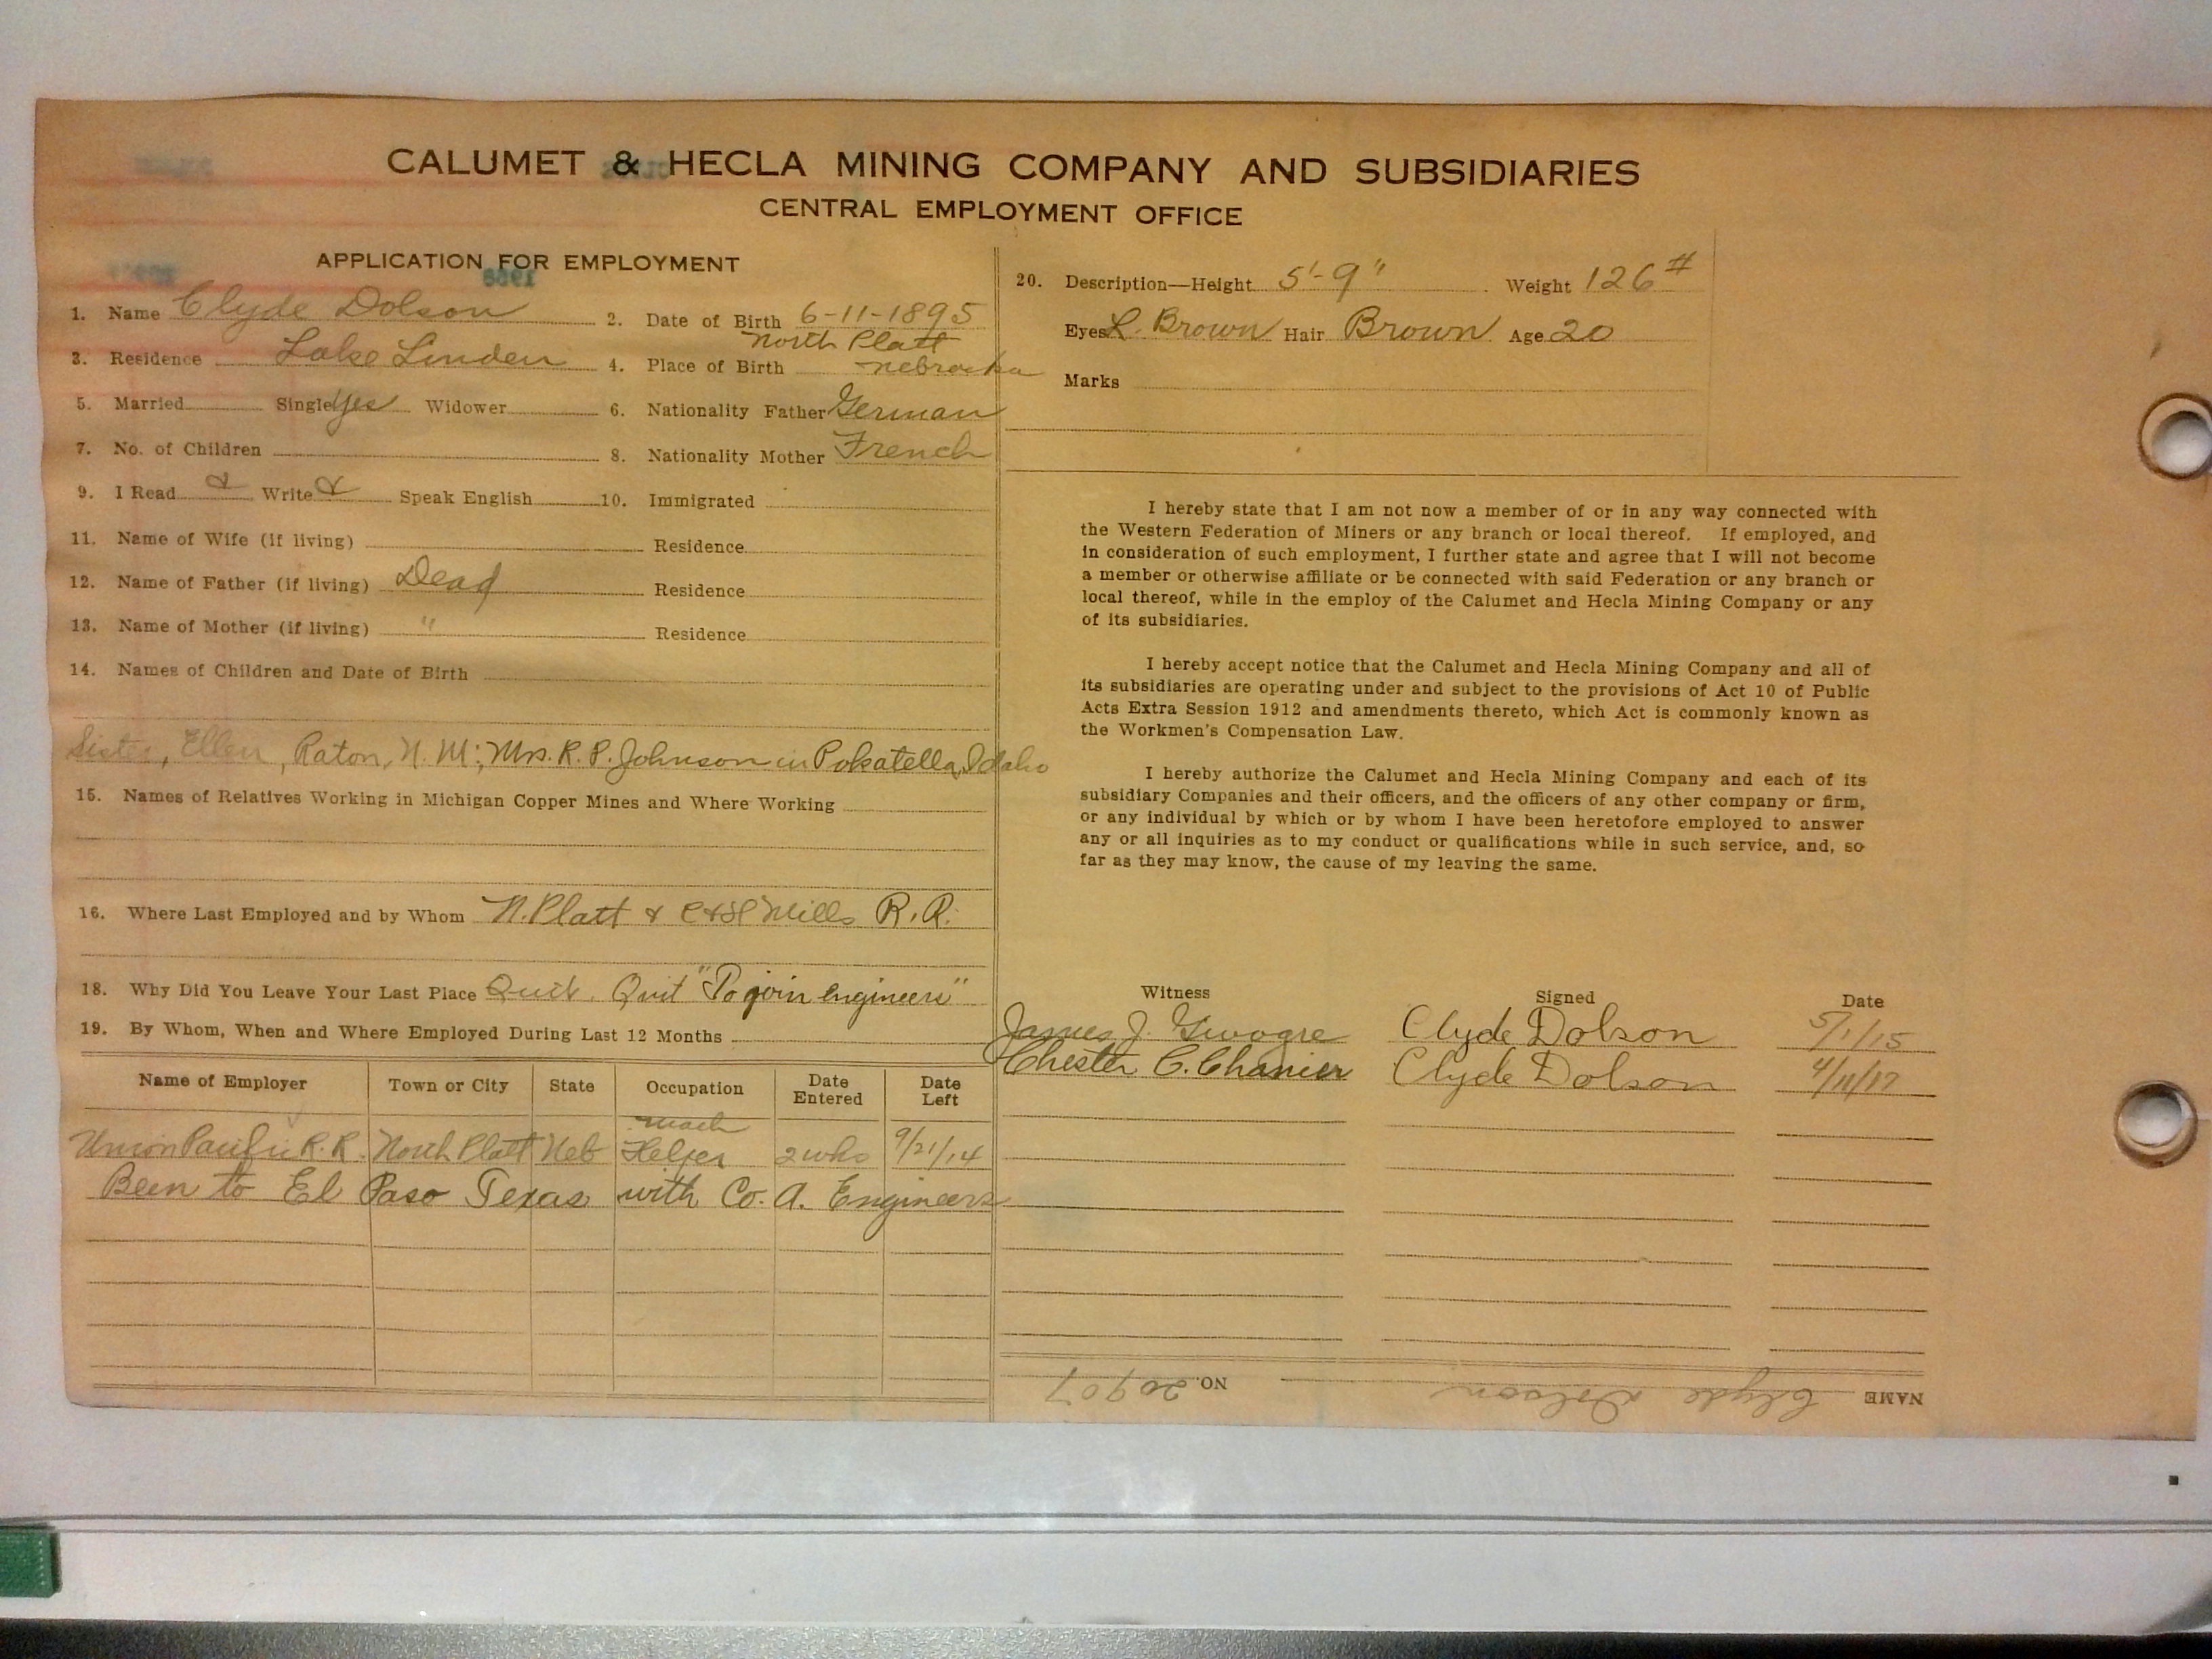 CALUMET & HECLA MINING COMPANY AND SUBSIDIARIES
CENTRAL EMPLOYMENT OFFICE
APPLICATION FOR EMPLOYMENT
1968
1. Name Clyde Dolson 2. Date of Birth 6-11-1895
North Platt
3. Residence Lake Linden 4. Place of Birth Nebraska
5. Married Single Yes Widower 6. Nationality Father German
7. No. of Children 8. Nationality Mother French
9. I Read & Write & Speak English 10. Immigrated
11. Name of Wife (if living) Residence
12. Name of Father (if living) Dead Residence
13. Name of Mother (if living) " Residence
14. Names of Children and Date of Birth
Sister, Ellen, Raton, N. M.; Mrs. R. P. Johnson in Pokatella, Idaho
15. Names of Relatives Working in Michigan Copper Mines and Where Working
16. Where Last Employed and by Whom N. Platt & C&H Mills R.R.
18. Why Did You Leave Your Last Place Quit. Quit "To join engineers"
19. By Whom, When and Where Employed During Last 12 Months
Name of Employer Town or City State Occupation Date Entered Date Left
Mach
Union Pacific R.R. North Platt Neb Helper 2 wks 9/21/14
Been to El Paso Texas with Co. A. Engineers
20. Description—Height 5'-9" Weight 126#
Eyes L. Brown Hair Brown Age 20
Marks
I hereby state that I am not now a member of or in any way connected with
the Western Federation of Miners or any branch or local thereof. If employed, and
in consideration of such employment, I further state and agree that I will not become
a member or otherwise affiliate or be connected with said Federation or any branch or
local thereof, while in the employ of the Calumet and Hecla Mining Company or any
of its subsidiaries.
I hereby accept notice that the Calumet and Hecla Mining Company and all of
its subsidiaries are operating under and subject to the provisions of Act 10 of Public
Acts Extra Session 1912 and amendments thereto, which Act is commonly known as
the Workmen's Compensation Law.
I hereby authorize the Calumet and Hecla Mining Company and each of its
subsidiary Companies and their officers, and the officers of any other company or firm,
or any individual by which or by whom I have been heretofore employed to answer
any or all inquiries as to my conduct or qualifications while in such service, and, so
far as they may know, the cause of my leaving the same.
Witness Signed Date
James J. Clyde Dolson 5/1/15
Chester C. Clyde Dolson 4/11/17
NAME Clyde Dolson NO. 20907